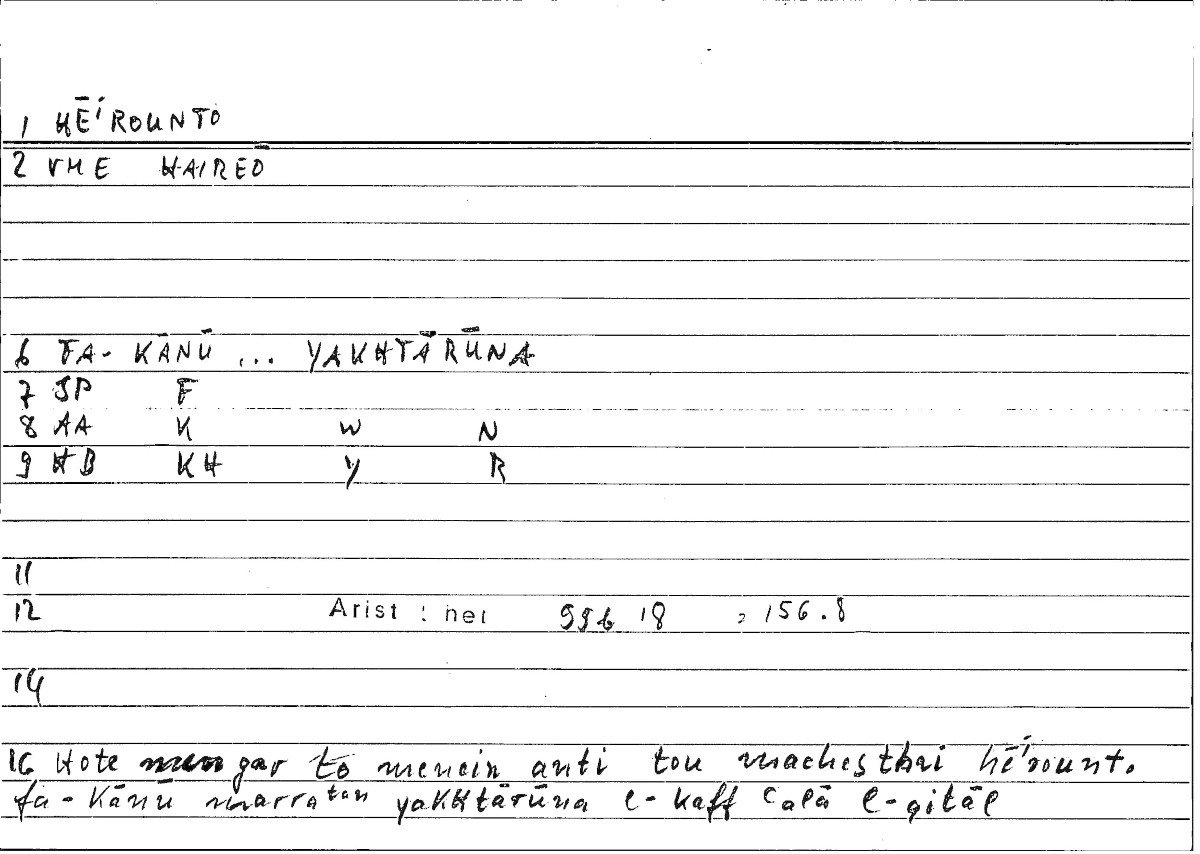 1 HĒ'ROUNTO
2 VME HAIREŌ
6 FA- KĀNŪ ... YAKHTĀRŪNA
7 SP F
8 AA K W N
9 HB KH Y R
11
12 Arist : her 99b 18 , 156.8
14
16 Hote men gar to menein anti tou machesthai hē'rount.
fa-Kānū marratan yakhtārūna l-kaff ʿalā l-qitāl